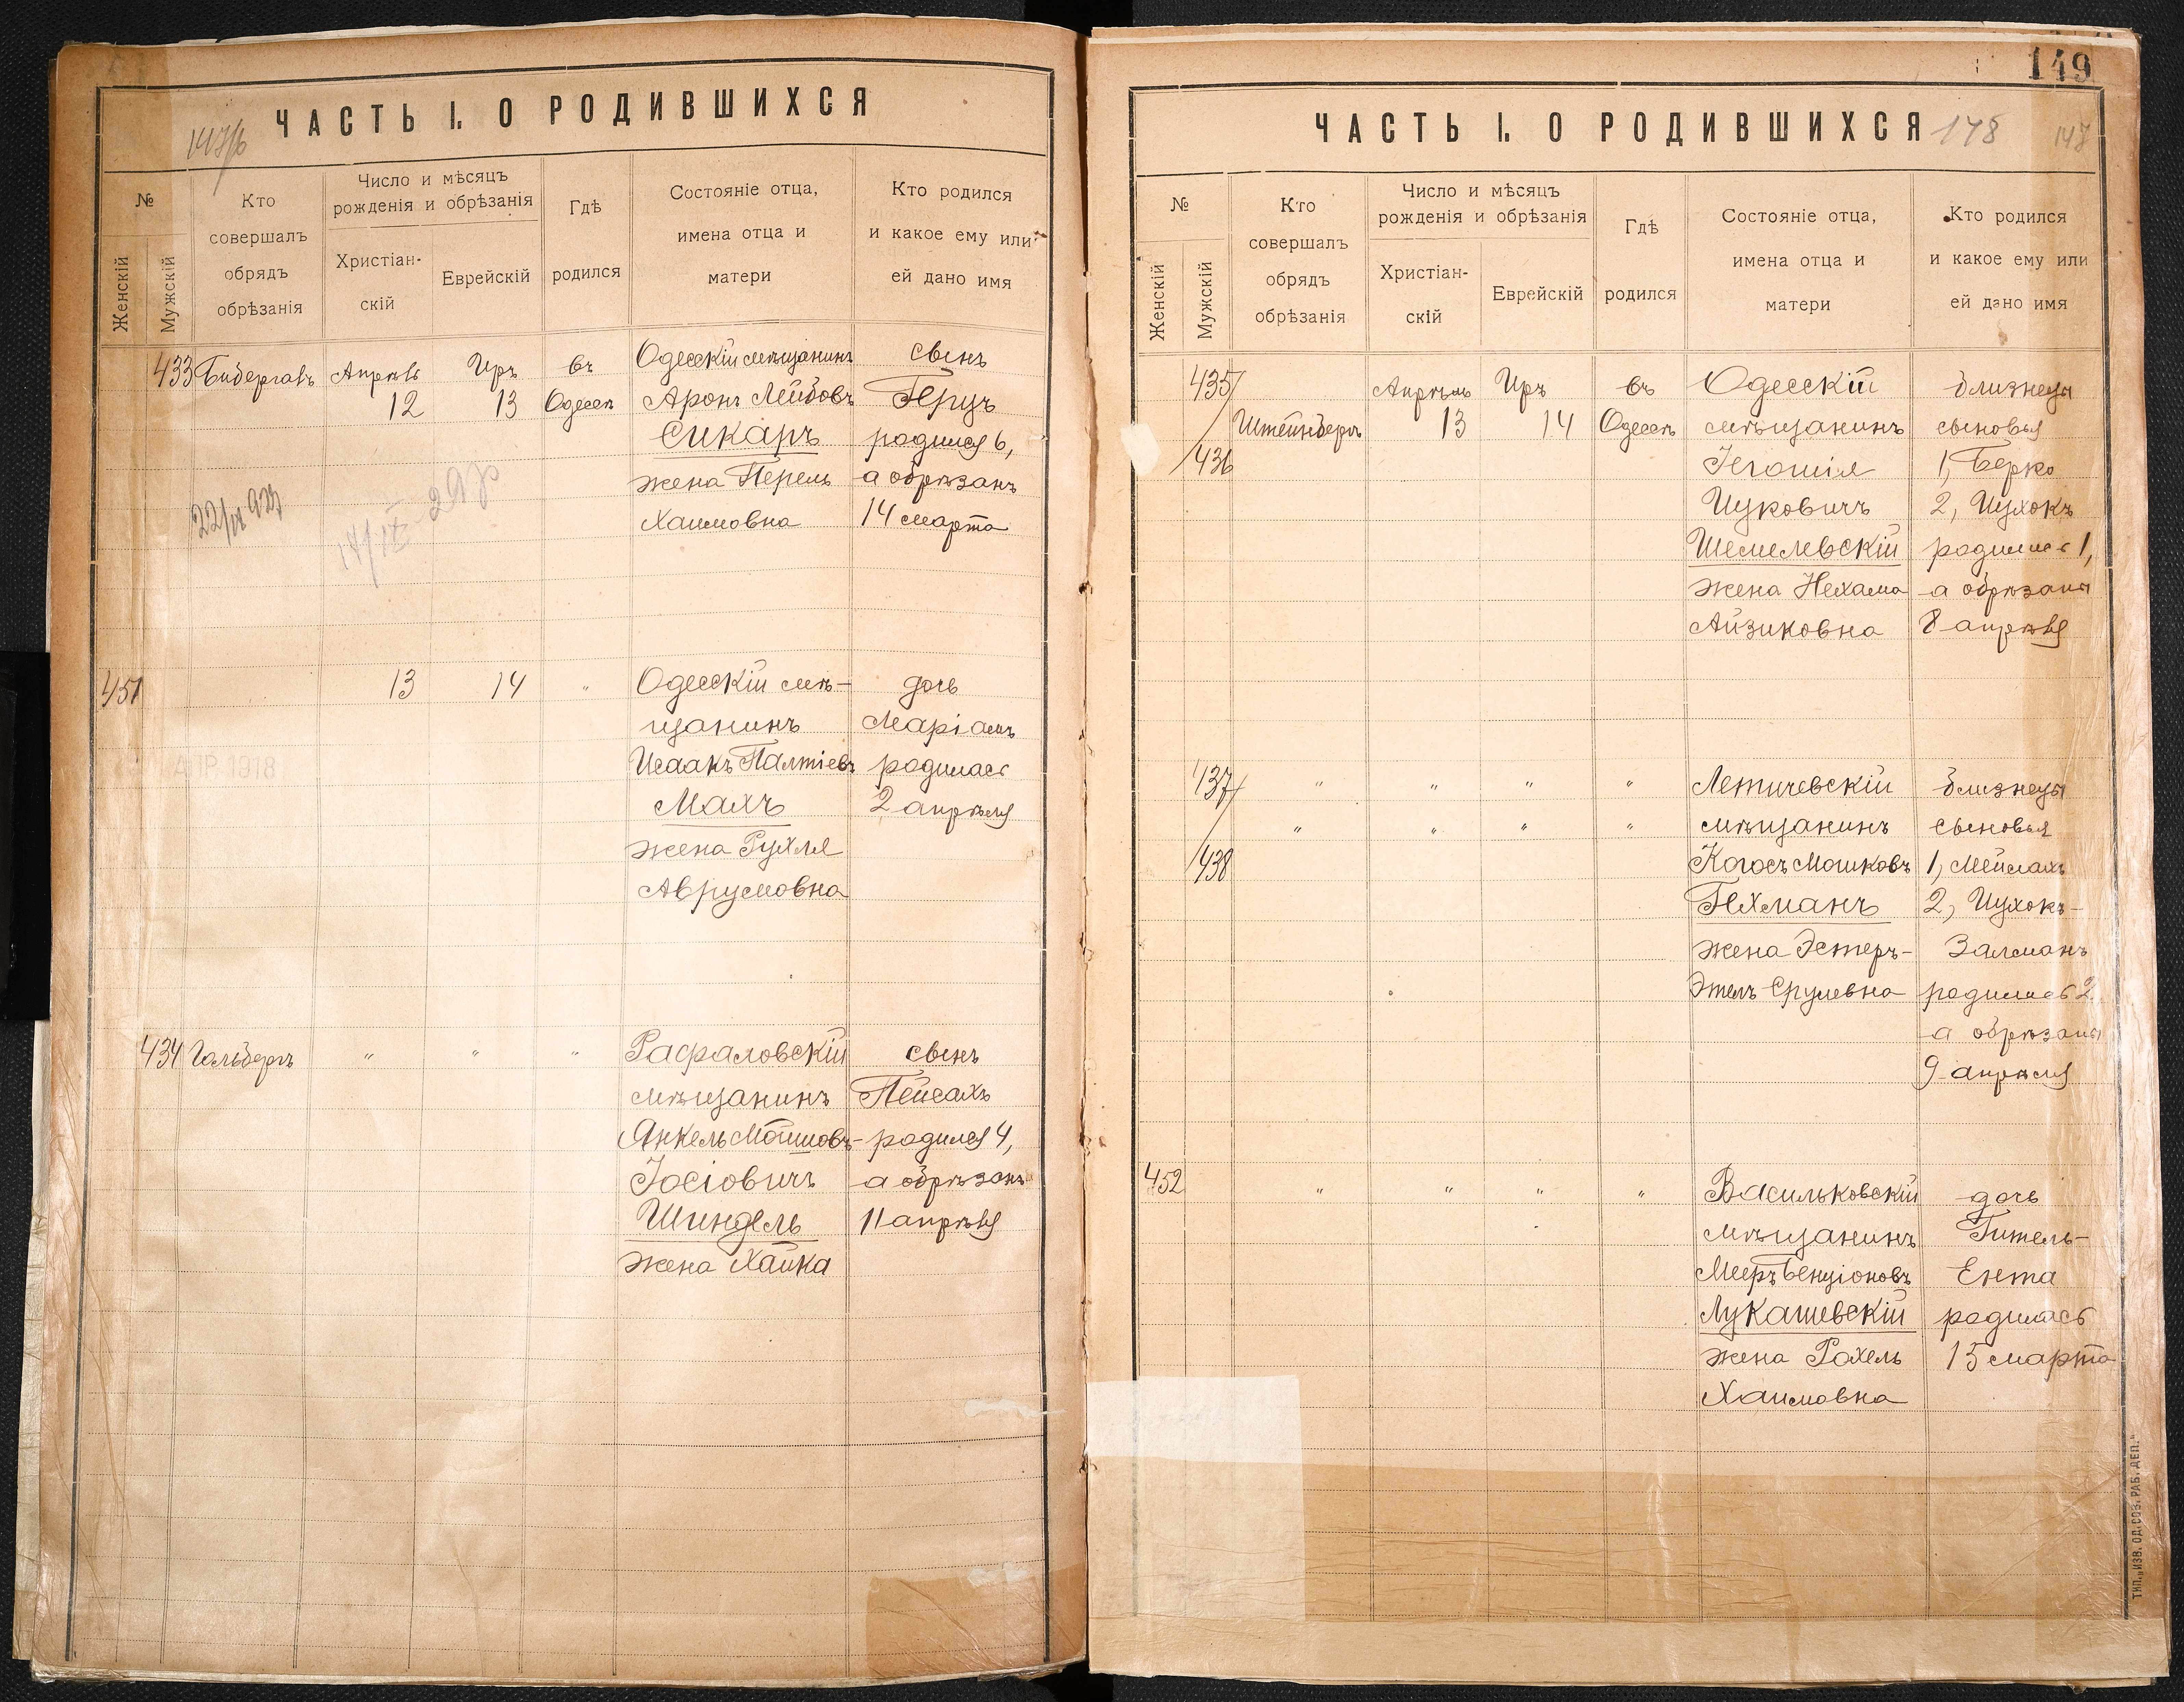 ЧАСТЬ I. О РОДИВШИХСЯ
№
Женскій
Мужскій
Кто
совершалъ
обрядъ
обрѣзанія
Число и мѣсяцъ
рожденія и обрѣзанія
Христіан-
скій
Еврейскій
Гдѣ
родился
Состояніе отца,
имена отца и
матери
Кто родился
и какое ему или
ей дано имя
433
Бибергалъ
Апрѣль
12
Иръ
13
въ
Одессѣ
Одесскій мѣщанинъ
Аронъ Лейбовъ
Сикаръ
жена Перель
Хаимовна
сынъ
Перуъ
родился 6,
а обрѣзанъ
14 марта
451
13
14
"
Одесскій мѣ-
щанинъ
Исаакъ Палтіевъ
Махъ
жена Рухля
Аврумовна
дочь
Маріамъ
родилась
2 апрѣля
АПР 1918
434
Гольбергъ
"
"
"
Рафаловскій
мѣщанинъ
Янкель Мошковъ-
Іосіовичъ
Шиндель
жена Хайка
сынъ
Пейсахъ
родился 4,
а обрѣзанъ
11 апрѣля
149
ЧАСТЬ I. О РОДИВШИХСЯ
178
147
№
Женскій
Мужскій
Кто
совершалъ
обрядъ
обрѣзанія
Число и мѣсяцъ
рожденія и обрѣзанія
Христіан-
скій
Еврейскій
Гдѣ
родился
Состояніе отца,
имена отца и
матери
Кто родился
и какое ему или
ей дано имя
435/
/436
Штейнбергъ
Апрѣль
13
Иръ
14
въ
Одессѣ
Одесскій
мѣщанинъ
Іегошія
Ицковичъ
Шемелевскій
жена Нехама
Айзиковна
близнецы
сыновья
1, Берко
2, Ицхокъ
родились 1,
а обрѣзаны
8 апрѣля
437/
/438
" " " "
" " " "
Летичевскій
мѣщанинъ
Когосъ Мошковъ
Гехманъ
жена Эстеръ-
Этель Срулевна
близнецы
сыновья
1, Мейлахъ
2, Ицхокъ-
Залманъ
родились 2
а обрѣзаны
9 апрѣля
452
" " " "
Васильковскій
мѣщанинъ
Мееръ Бенціоновъ
Лукашевскій
жена Рахель
Хаимовна
дочь
Гитель-
Ента
родилась
15 марта
ТИП. „ИЗВ. ОД. СОВ. РАБ. ДЕП."